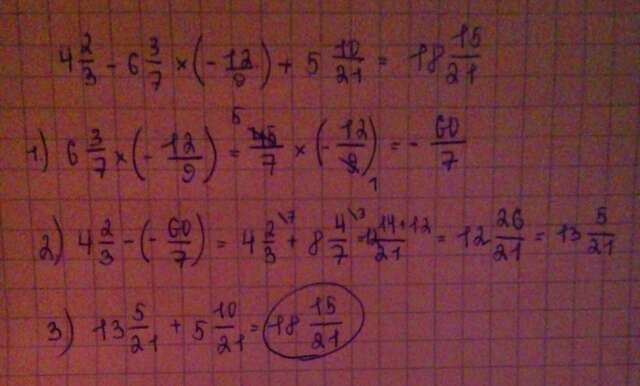 4 2/3 - 6 3/7 × (- 12/9) + 5 10/21 = 18 15/21
1) 6 3/7 × (- 12/9) = 45/7 5 × (- 12/9) 1 = - 60/7
2) 4 2/3 - (- 60/7) = 4 2/3 \7 + 8 4/7 \3 = 12 14+12/21 = 12 26/21 = 13 5/21
3) 13 5/21 + 5 10/21 = 18 15/21